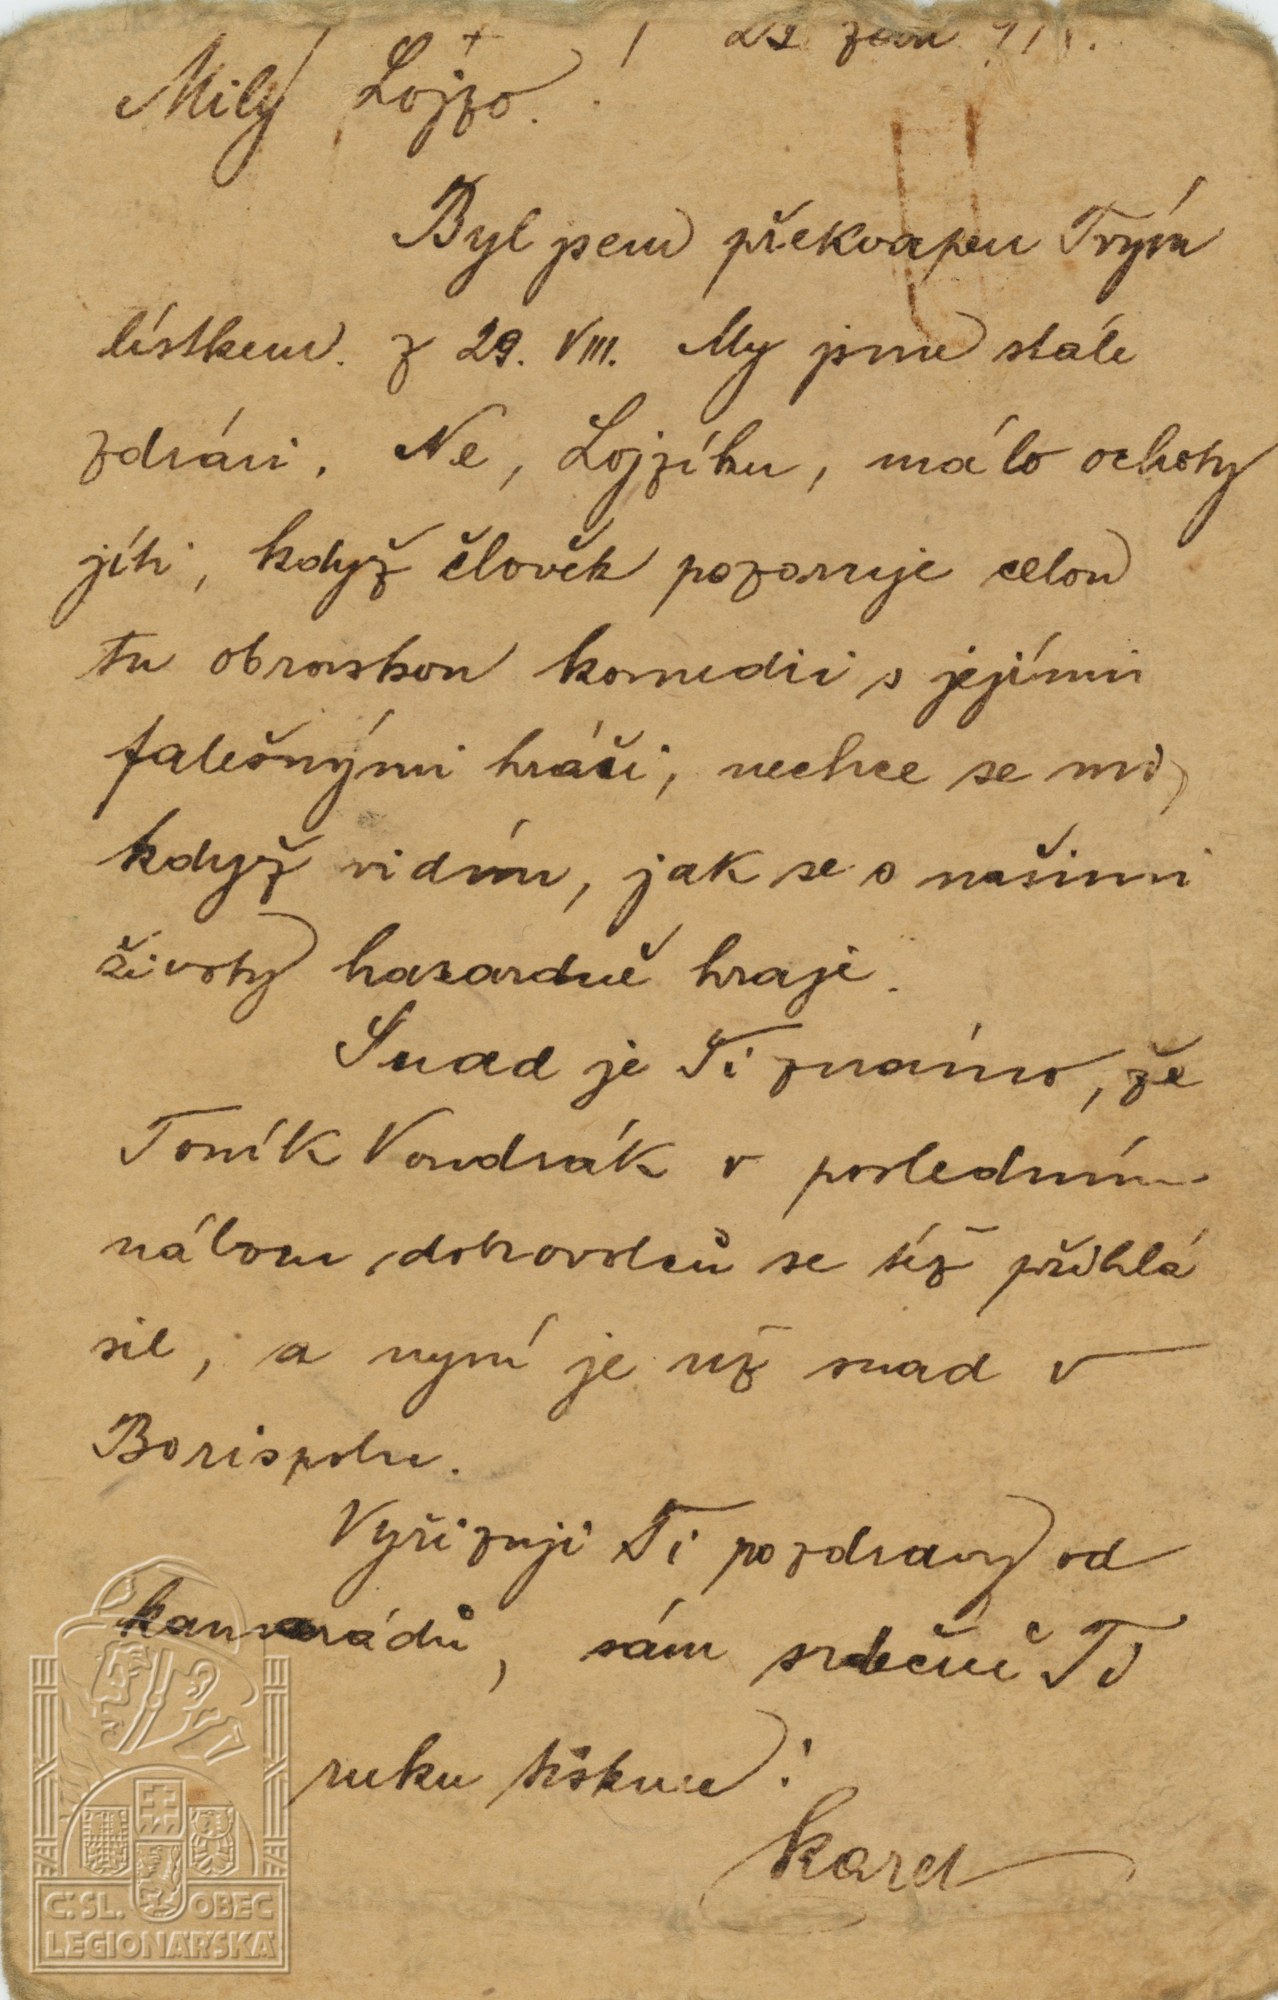 29 září 917.
Milý Lojzo!
Byl jsem překvapen Tvým
lístkem z 29. VIII. My jsme stále
zdrávi. Ne, Lojzíku, málo ochoty
jíti, když člověk pozoruje celou
tu obrovskou komedii s jejími
falešnými hráči, nechce se mi,
když vidím, jak se s našimi
životy hasardně hraje.
Snad je Ti známo, že
Toník Vondrák v posledním
náboru dobrovolců se též přihlá
sil, a nyní je už snad v
Borispolu.
Vyřizuji Ti pozdravy od
kamarádů, sám srdečně Ti
ruku tisknu!
Karel
Č.SL. OBEC
LEGIONÁŘSKÁ